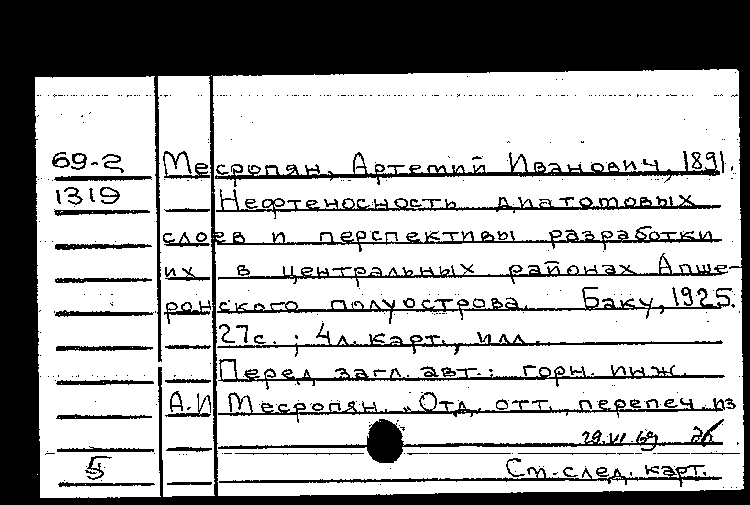 69-2 Месропян, Артемий Иванович, 1891.
1319 Нефтеносность диатомовых
слоев и перспективы разработки
их в центральных районах Апше-
ронского полуострова. Баку, 1925.
27с. ; 4л. карт., илл.
Перед загл. авт.: горн. инж.
А.И Месропян. "Отд. отт., перепеч. из
29.VI.69
5 См.-след. карт.